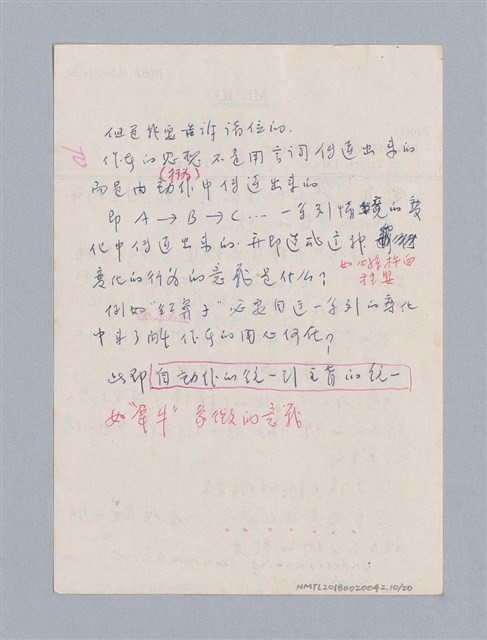 但是我要告诉诸位的.
作者的思想不是用言词传达出来的
(行为)
而是由动作中传达出来的
即 A → B → C … 一系列情境的变
化中传达出来的. 再即造成这种
变化的行为的意义是什么?
如心经 苏白
例如"红鼻子"必要自这一系列的变化
中来了解作者的用心何在?
此即自动作的统一到主旨的统一
如"牵牛"象徵的意义
NMTL20180020042.10/20